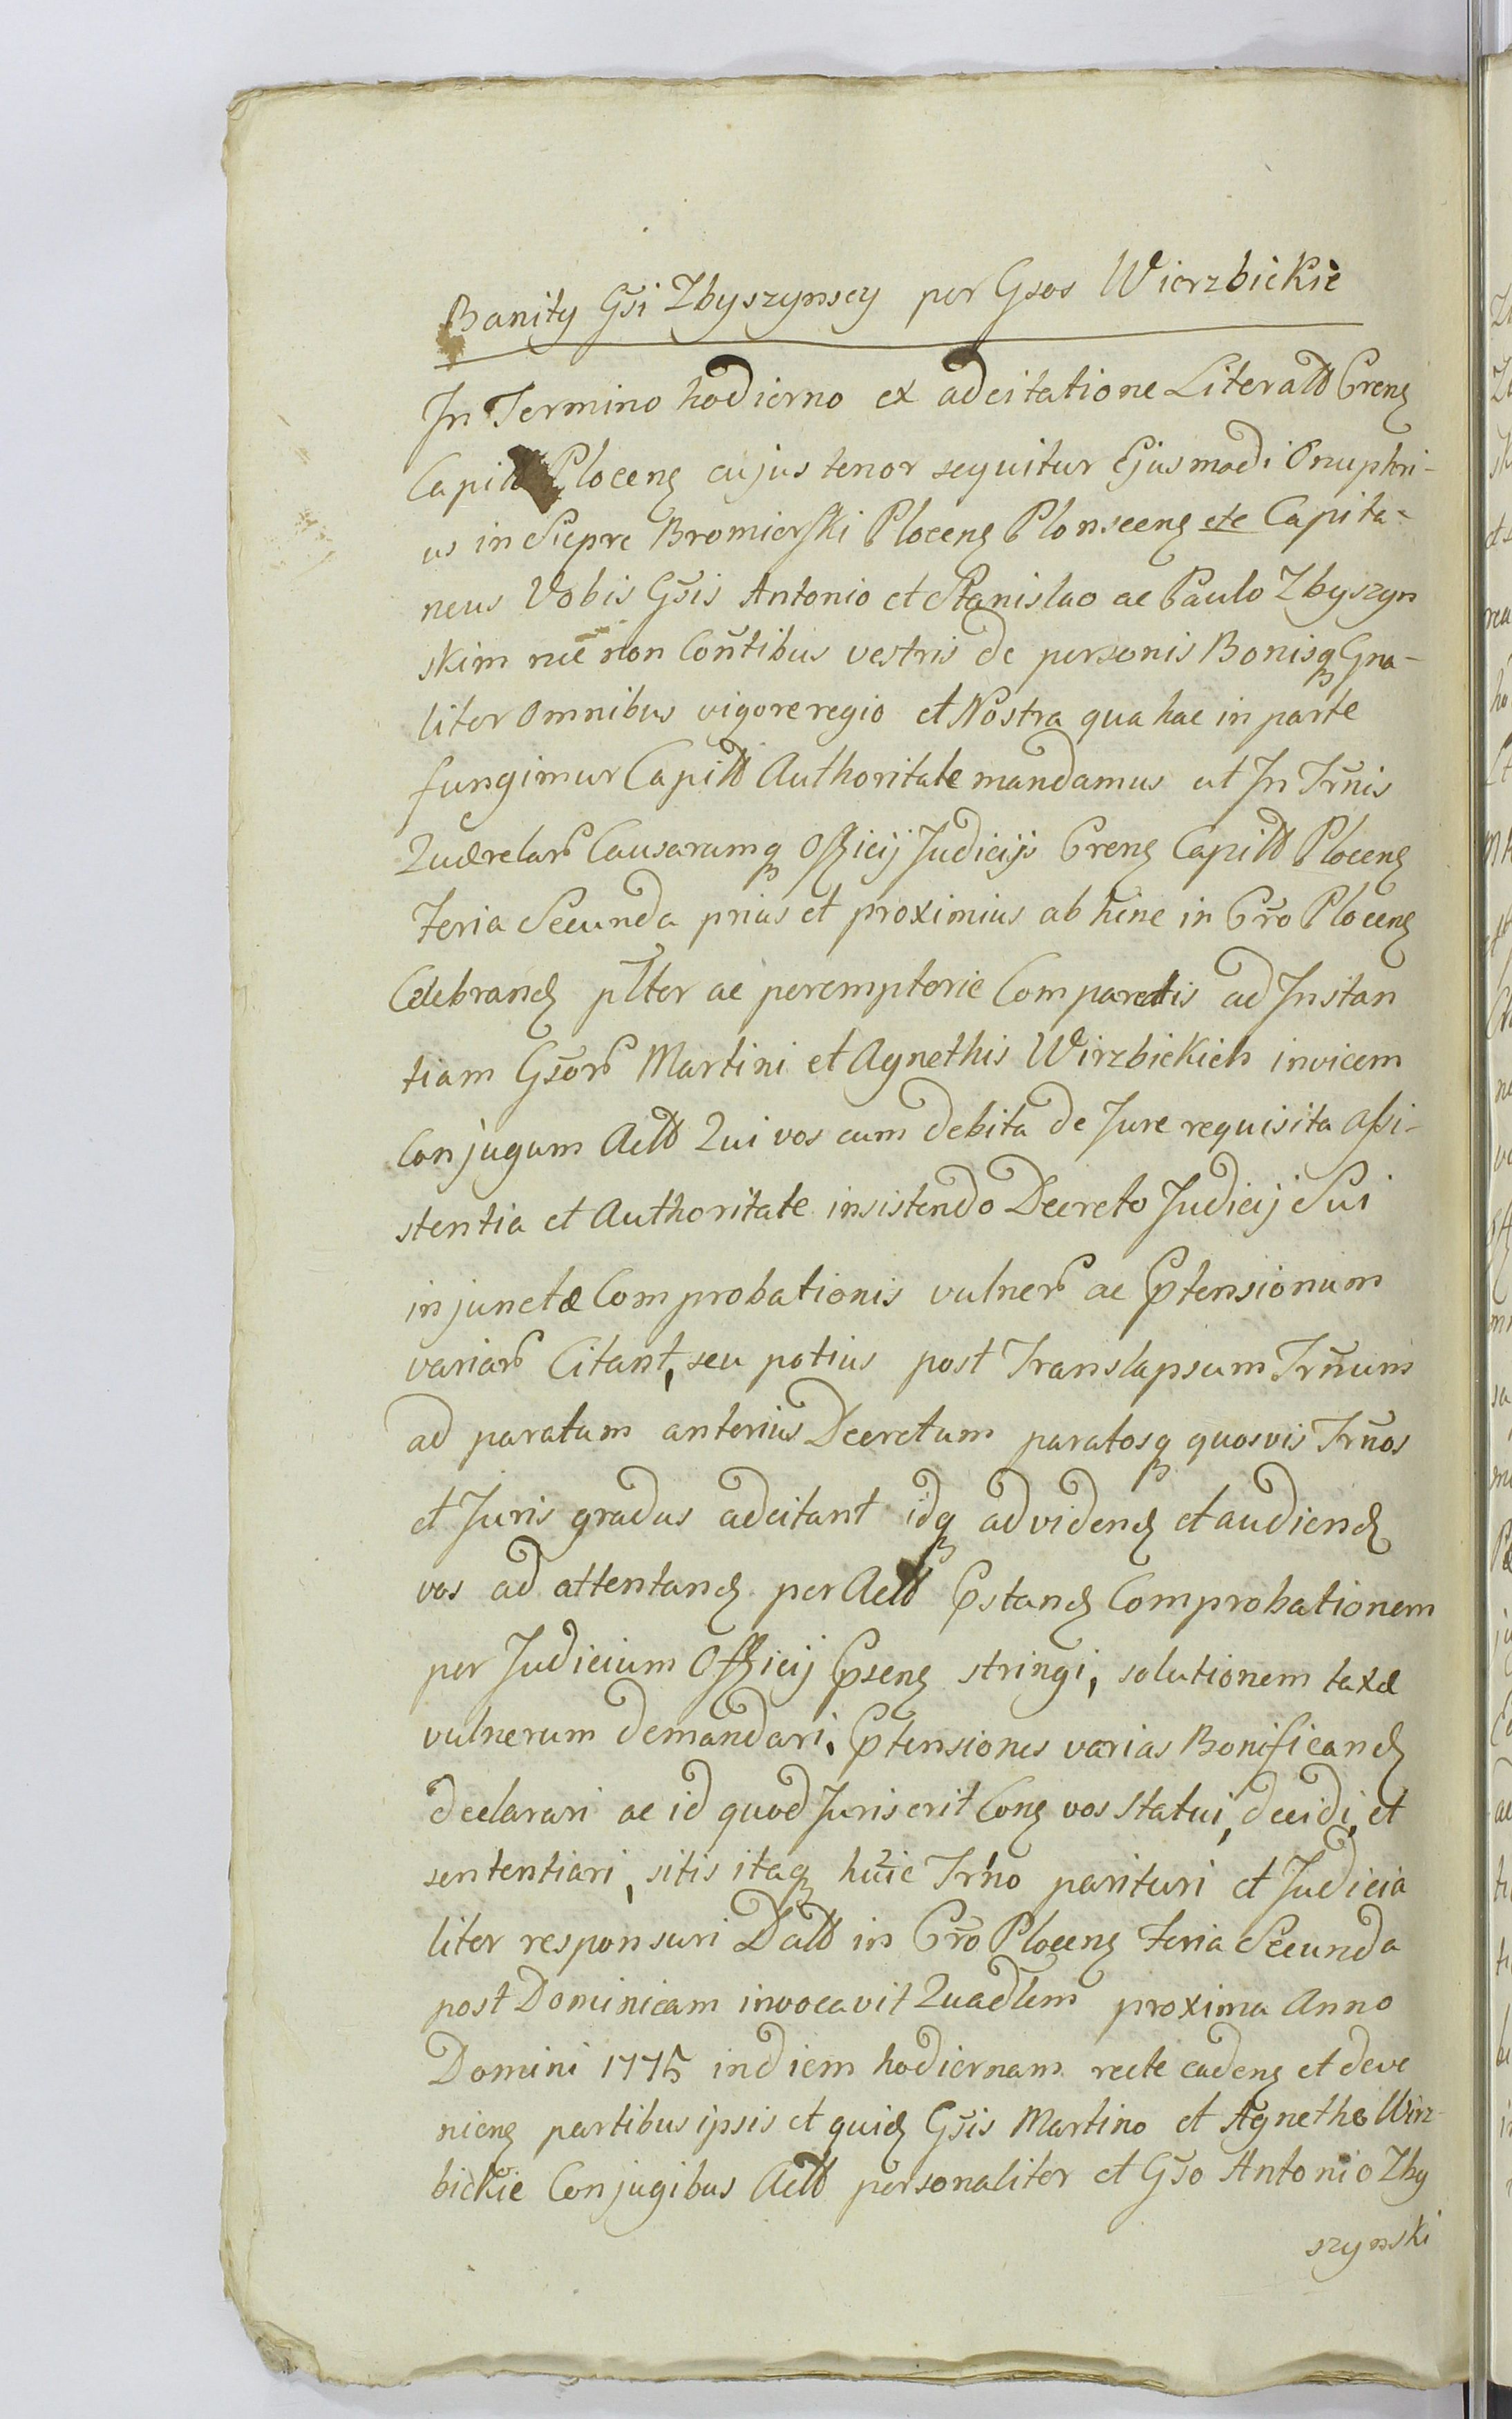 Banity Gsi Zbyszynscy per Gsos Wierzbickie
In Termino hodierno ex adcitatione Literali Crens
Capitli Plocens cujus tenor sequitur Ejusmodi Onuphri-
us in Siepre Bromierski Plocens Plonscens etc Capita-
neus Vobis Gsis Antonio et Stanislao ac Paulo Zbyszyn
skim nec non Contibus vestris de personis Bonisq Gna-
liter omnibus vigore regio et Nostra qua hac in parte
fungimur Capitli Authoritate mandamus ut In Trnis
Quærelar Causarumq Officij Judicijs Crens Capitli Plocens
Feria Secunda prius et proximius ab hinc in Cro Plocens
Celebrand plter ac peremptorie Compareatis ad Instan
tiam Gsor Martini et Agnethis Wirzbickich invicem
Conjugum Actt Qui vos cum debita de Jure requisita assi-
stentia et Authoritate insistendo Decreto Judicij Sui
injunctæ Comprobationis vulner ac Ptensionum
variar Citant, seu potius post Translapsum Trnum
ad paratum anterius Decretum paratosq quosvis Trnos
et Juris gradus adcitant idq ad vidend et audiend
vos ad attentand per Actt Pstand Comprobationem
per Judicium Officij Psens stringi, solutionem taxæ
vulnerum demandari, Ptensiones varias Bonificand
declarari ac id quod Juris erit Cons vos statui, decidi, et
sententiari, sitis itaq huic Trno parituri et Judicia
liter responsuri Datt in Cro Plocens Feria Secunda
post Dominicam invocavit Quadlem proxima Anno
Domini 1775 in diem hodiernam recte cadens et deve
niens partibus ipsis et quid Gsis Martino et Agnethe Wirz-
bickie Conjugibus Actt personaliter et Gso Antonio Zby
szynski